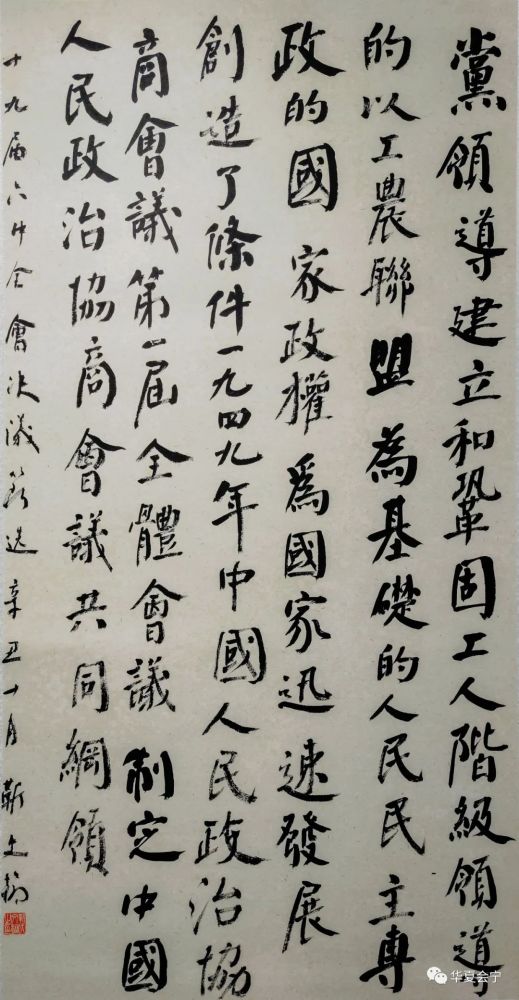 黨領導建立和鞏固工人階級領導
的以工農聯盟為基礎的人民民主專
政的國家政權為國家迅速發展
創造了條件一九四九年中國人民政治協
商會議第一屆全體會議制定中國
人民政治協商會議共同綱領
十九届六中全會决議節选辛丑十月靳士
华夏会宁